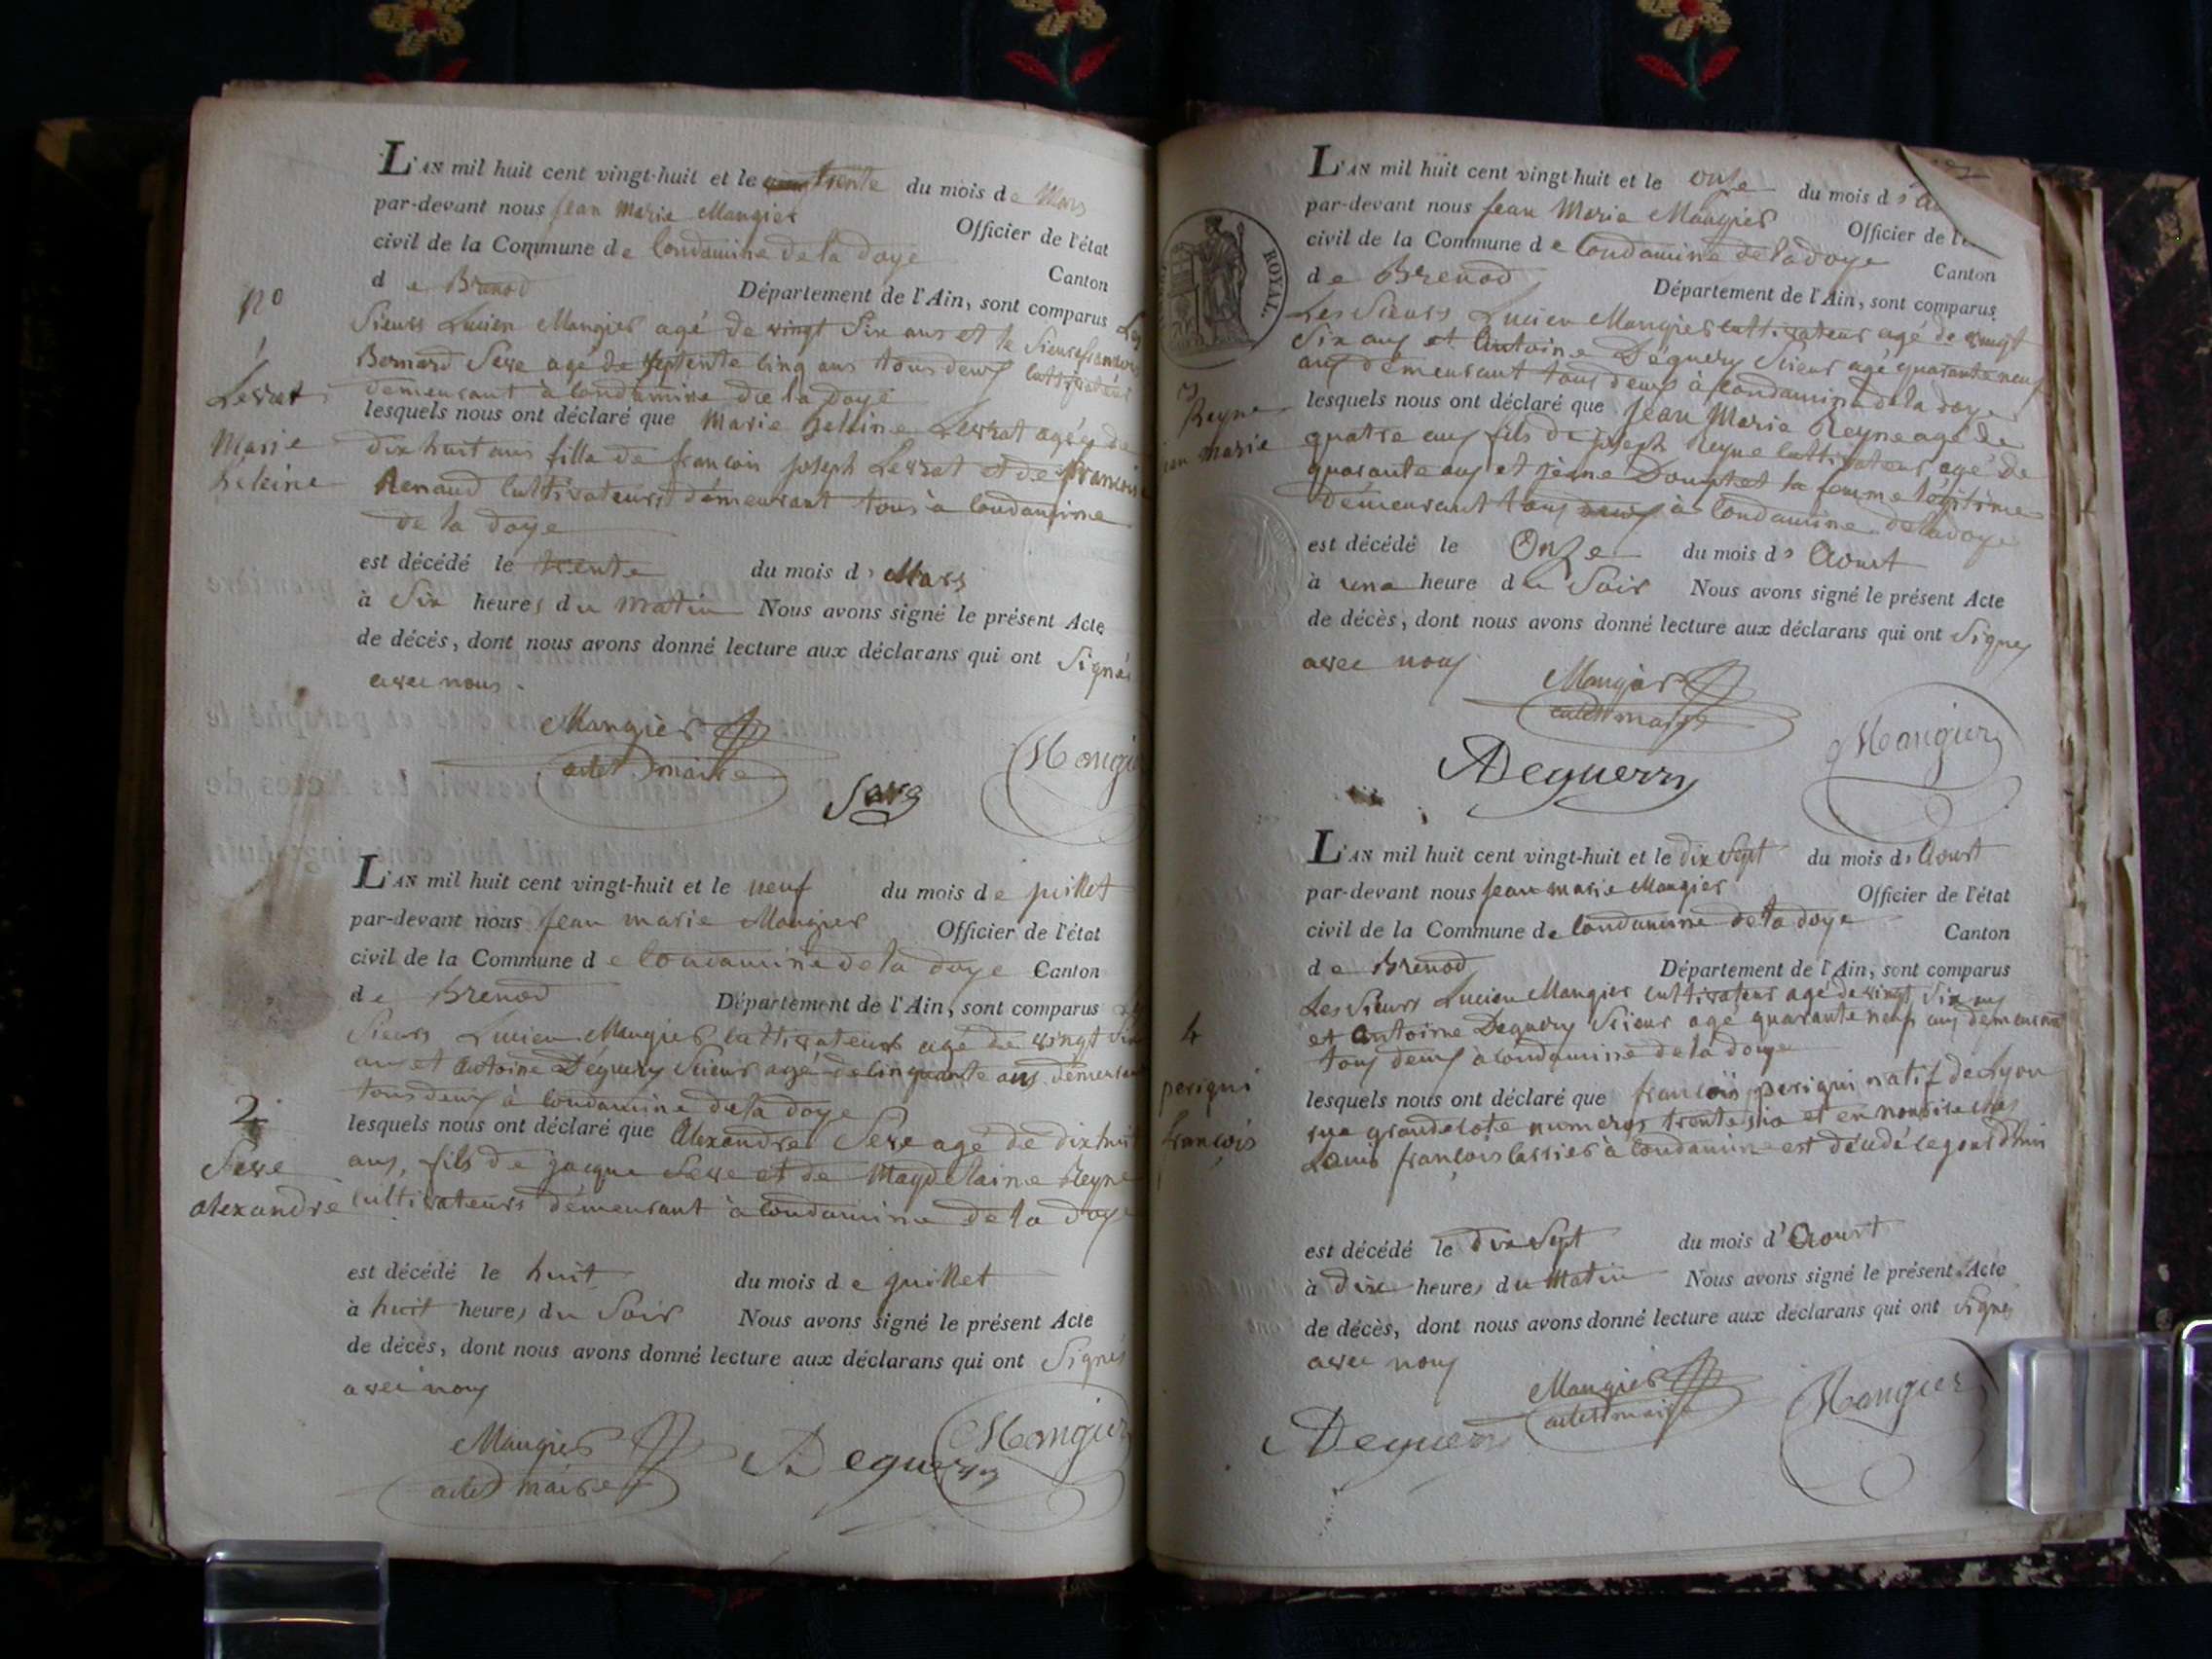 L'AN mil huit cent vingt-huit et le trente du mois de Mars
par-devant nous Jean Marie Maugier Officier de l'état
civil de la Commune de Condamine de la doye Canton
de Brenod Département de l'Ain, sont comparus Les
Sieurs Lucien Maugier agé de vingt Six ans et le Sieur francois
Bernard Seve agé de septente cinq ans tous deux cultivateur
demeurant à Condamine de la doye
lesquels nous ont déclaré que Marie heleine Levrat agée de
dix huit ans fille de francois joseph Levrat et de francoise
Renaud cultivateurs démeurant tous à Condamine
de la doye
est décédé le trente du mois de Mars
à Six heures du matin Nous avons signé le présent Acte
de décés, dont nous avons donné lecture aux déclarans qui ont Signé
avec nous.
Maugier
adet maire
Seve
Maugier
no
1
Levrat
Marie
heleine
L'AN mil huit cent vingt-huit et le neuf du mois de juillet
par-devant nous Jean marie Maugier Officier de l'état
civil de la Commune de Condamine de la doye Canton
de Brenod Département de l'Ain, sont comparus
Sieurs Lucien Maugier cultivateur agé de vingt Six
ans et Antoine Déguery Scieur agé de cinquante ans démeurant
tous deux à Condamine de la doye
lesquels nous ont déclaré que Alexandre Seve agé de dix huit
ans, fils de jacque Seve et de Magdelaine Reyne
cultivateurs démeurant à Condamine de la doye
est décédé le huit du mois de juillet
à huit heures du Soir Nous avons signé le présent Acte
de décès, dont nous avons donné lecture aux déclarans qui ont Signés
avec nous
Maugier
adet maire
A Deguerry
Maugier
2
Séve
alexandre
L'AN mil huit cent vingt-huit et le onze du mois d'
par-devant nous Jean Marie Maugier Officier de l'
civil de la Commune de Condamine de la doye Canton
de Brenod Département de l'Ain, sont comparus
Les Sieurs Lucien Maugier cultivateur agé de vingt
Six ans et Antoine Déguery Scieur agé quarante neuf
ans démeurant tous deux à Condamine de la doye
lesquels nous ont déclaré que Jean Marie Reyne agé de
quatre ans fils de joseph Reyne cultivateur agé de
quarante ans et sa femme légitime
démeurant tous à Condamine de la doye
est décédé le Onze du mois d' Aoust
à une heure du Soir Nous avons signé le présent Acte
de décès, dont nous avons donné lecture aux déclarans qui ont Signés
avec nous
Maugier
adet maire
A Deguerry
Maugier
ROYAL.
3
Reyne
jean marie
L'AN mil huit cent vingt-huit et le dix Sept du mois d' Aoust
par-devant nous Jean marie Maugier Officier de l'état
civil de la Commune de Condamine de la doye Canton
de Brenod Département de l'Ain, sont comparus
Les Sieurs Lucien Maugier cultivateur agé de vingt Six ans
et Antoine Deguery Scieur agé quarante neuf ans demeurant
tous deux à Condamine de la doye
lesquels nous ont déclaré que françois perigni natif de Lyon
rue grande cote numeros trente six et en nourice ches
Louis françois Carrier à Condamine est décédé le jourdhui
est décédé le dix Sept du mois d' Aoust
à dix heures du Matin Nous avons signé le présent Acte
de décès, dont nous avons donné lecture aux déclarans qui ont Signés
avec nous
Maugier
adet maire
A Deguerry
Maugier
4
perigni
françois